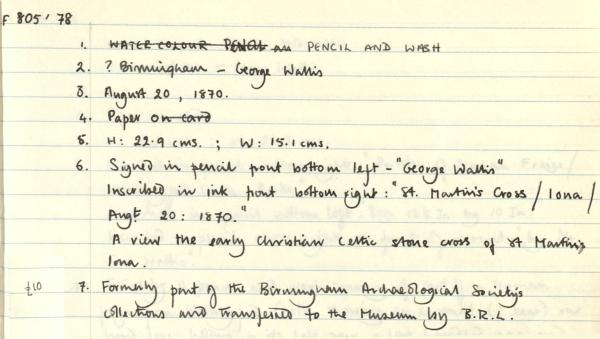 F 805'78
1. WATER COLOUR PENCIL on PENCIL AND WASH
2. ? Birmingham - George Wallis
3. August 20, 1870.
4. Paper on card
5. H: 22.9 cms. ; W: 15.1 cms.
6. Signed in pencil front bottom left - "George Wallis"
Inscribed in ink front bottom right: "St. Martin's Cross / Iona /
Augt. 20: 1870."
A view the early Christian Celtic stone cross of St Martin's,
Iona.
£10 7. Formerly part of the Birmingham Archaeological Society's
collections and transferred to the Museum by B.R.L.